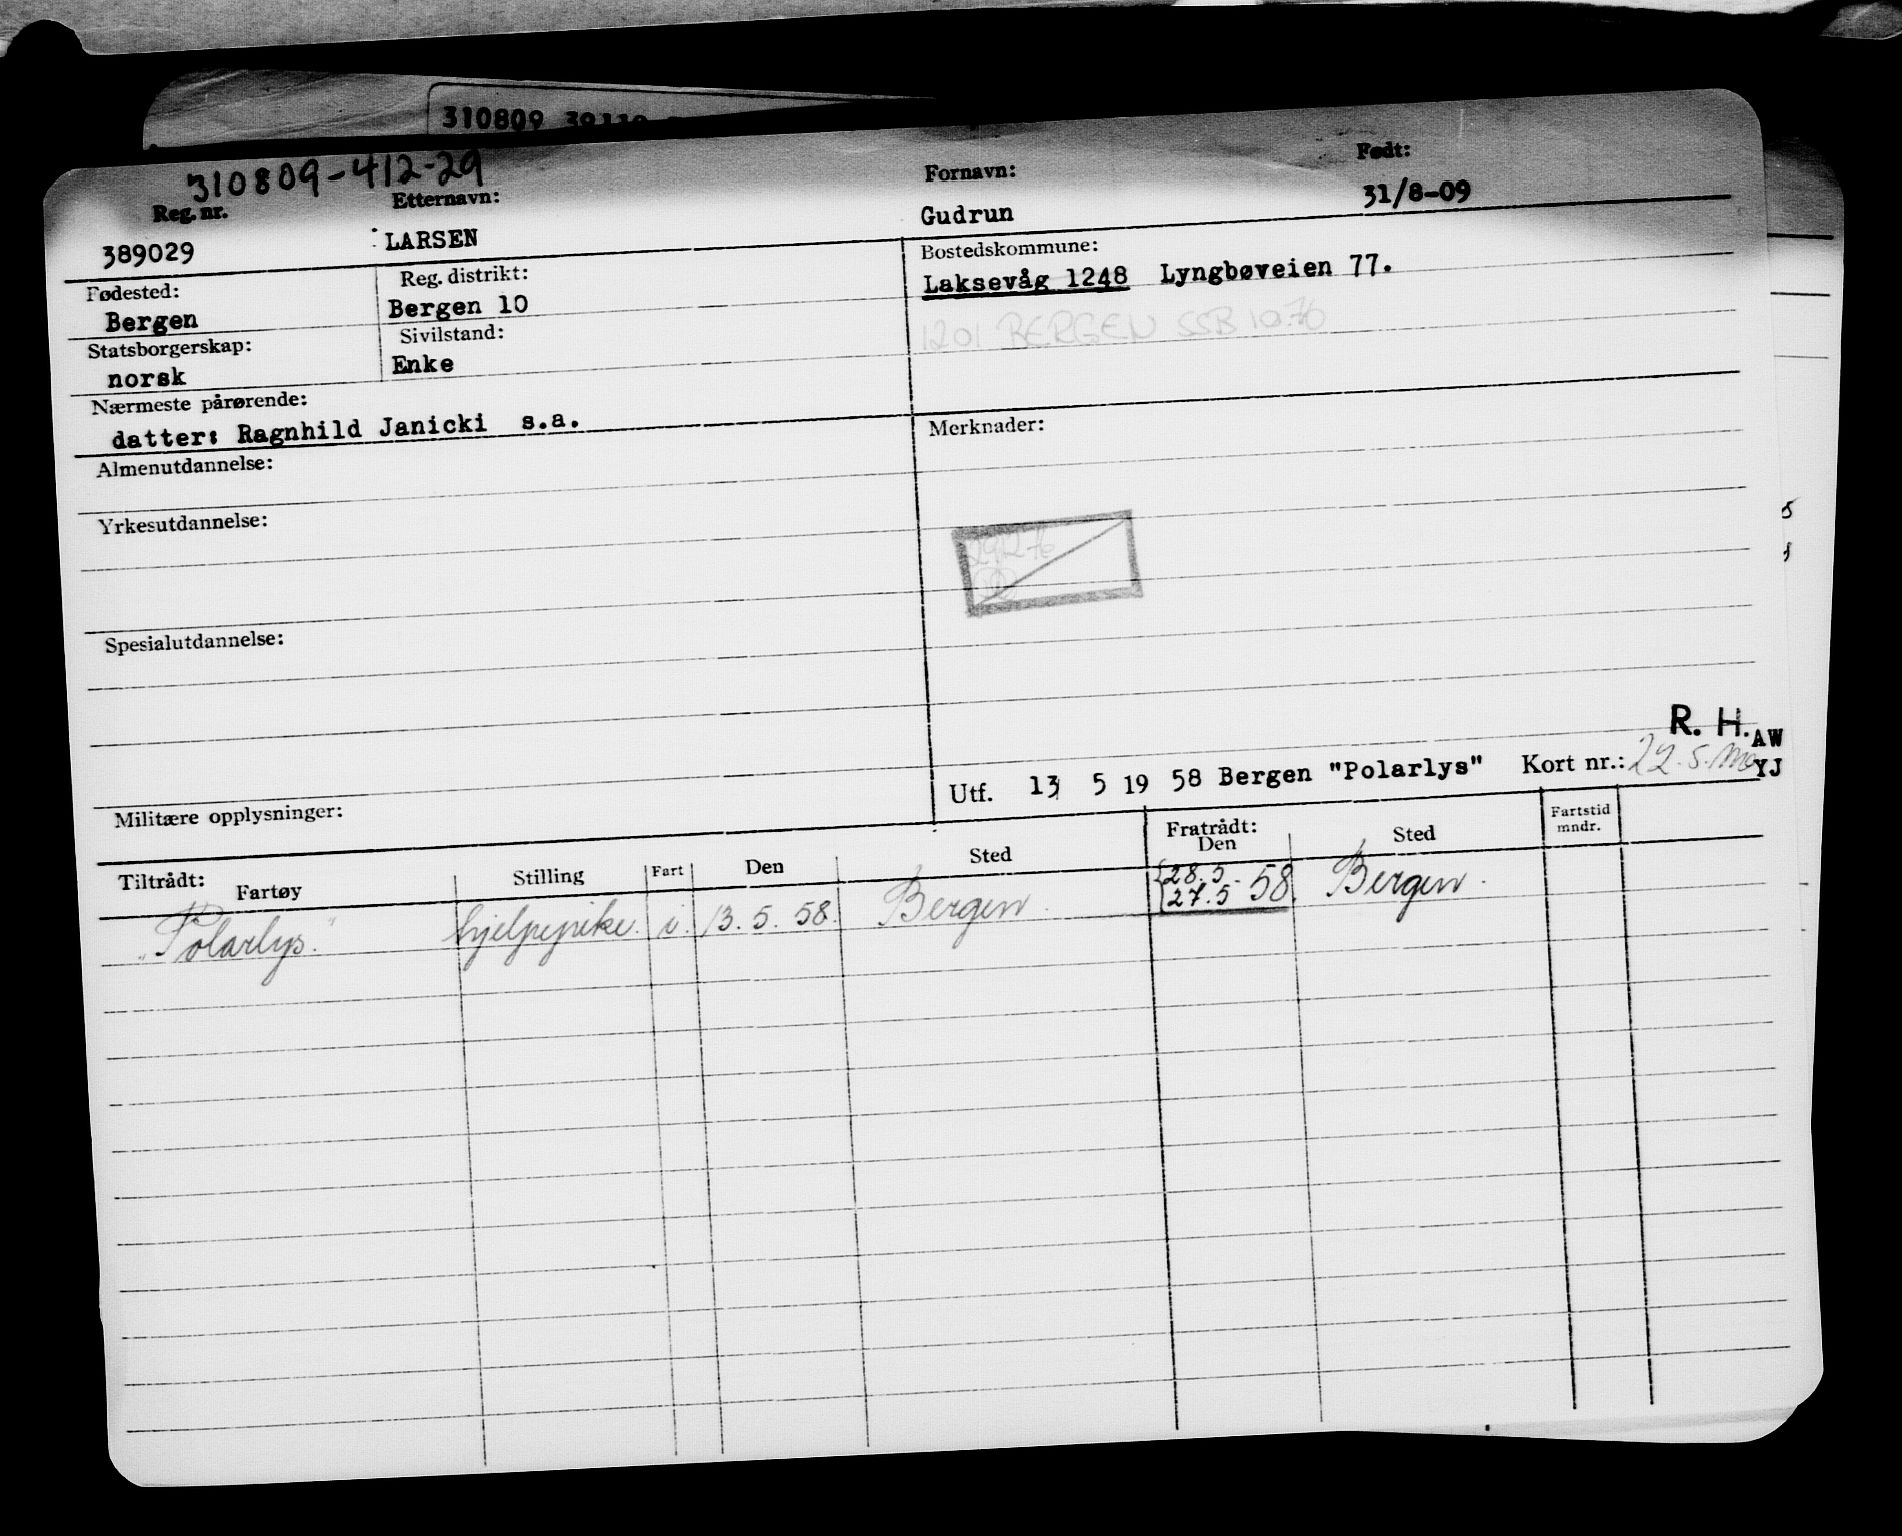 310809
310809-412-29
Reg. nr. Etternavn: Fornavn: Født:
389029 LARSEN Gudrun 31/8-09
Fødested: Reg. distrikt: Bostedskommune:
Bergen Bergen 10 Laksevåg 1248 Lyngbøveien 77.
Statsborgerskap: Sivilstand: 1201 BERGEN SSB 10.76
norsk Enke
Nærmeste pårørende:
datter: Ragnhild Janicki s.a.
Almenutdannelse: Merknader:
Yrkesutdannelse:
291276
Spesialutdannelse:
R. H. AW
Militære opplysninger: Utf. 13 5 19 58 Bergen "Polarlys" Kort nr.: 22.5. YJ
Tiltrådt: Fratrådt: Fartstid
Fartøy Stilling Fart Den Sted Den Sted mndr.
"Polarlys." hjelpepike. i. 13.5.58. Bergen. 28.5. Bergen.
27.5 58.